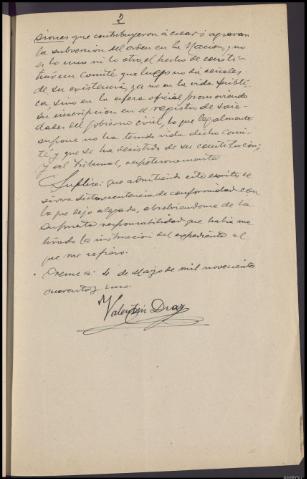 2
ciones que contribuyeron á crear ó agravar
la subversion del orden en la Nacion; no
es lo uno ni lo otro, el hecho de constituirse
en Comité que luego no dá señales
de su existencia, ya no en la vida públi-
ca, sino en la esfera oficial promoviendo
su inscripcion en el registro de socie-
dades del Gobierno civil, lo que legalmente
supone no ha tenido vida dicho Comi-
té, y que se ha desistido de su constitucion;
y al Tribunal, respetuosamente
Suplico: que admitiendo este escrito se
sirva dictar sentencia de conformidad con
lo que dejo alegado, absolviéndome de la
supuesta responsabilidad que había mo-
tivado la instruccion del expediente al
que me refiero.
á 4 de Mayo de mil novecientos
cuarenta y uno.
Valentín Diaz